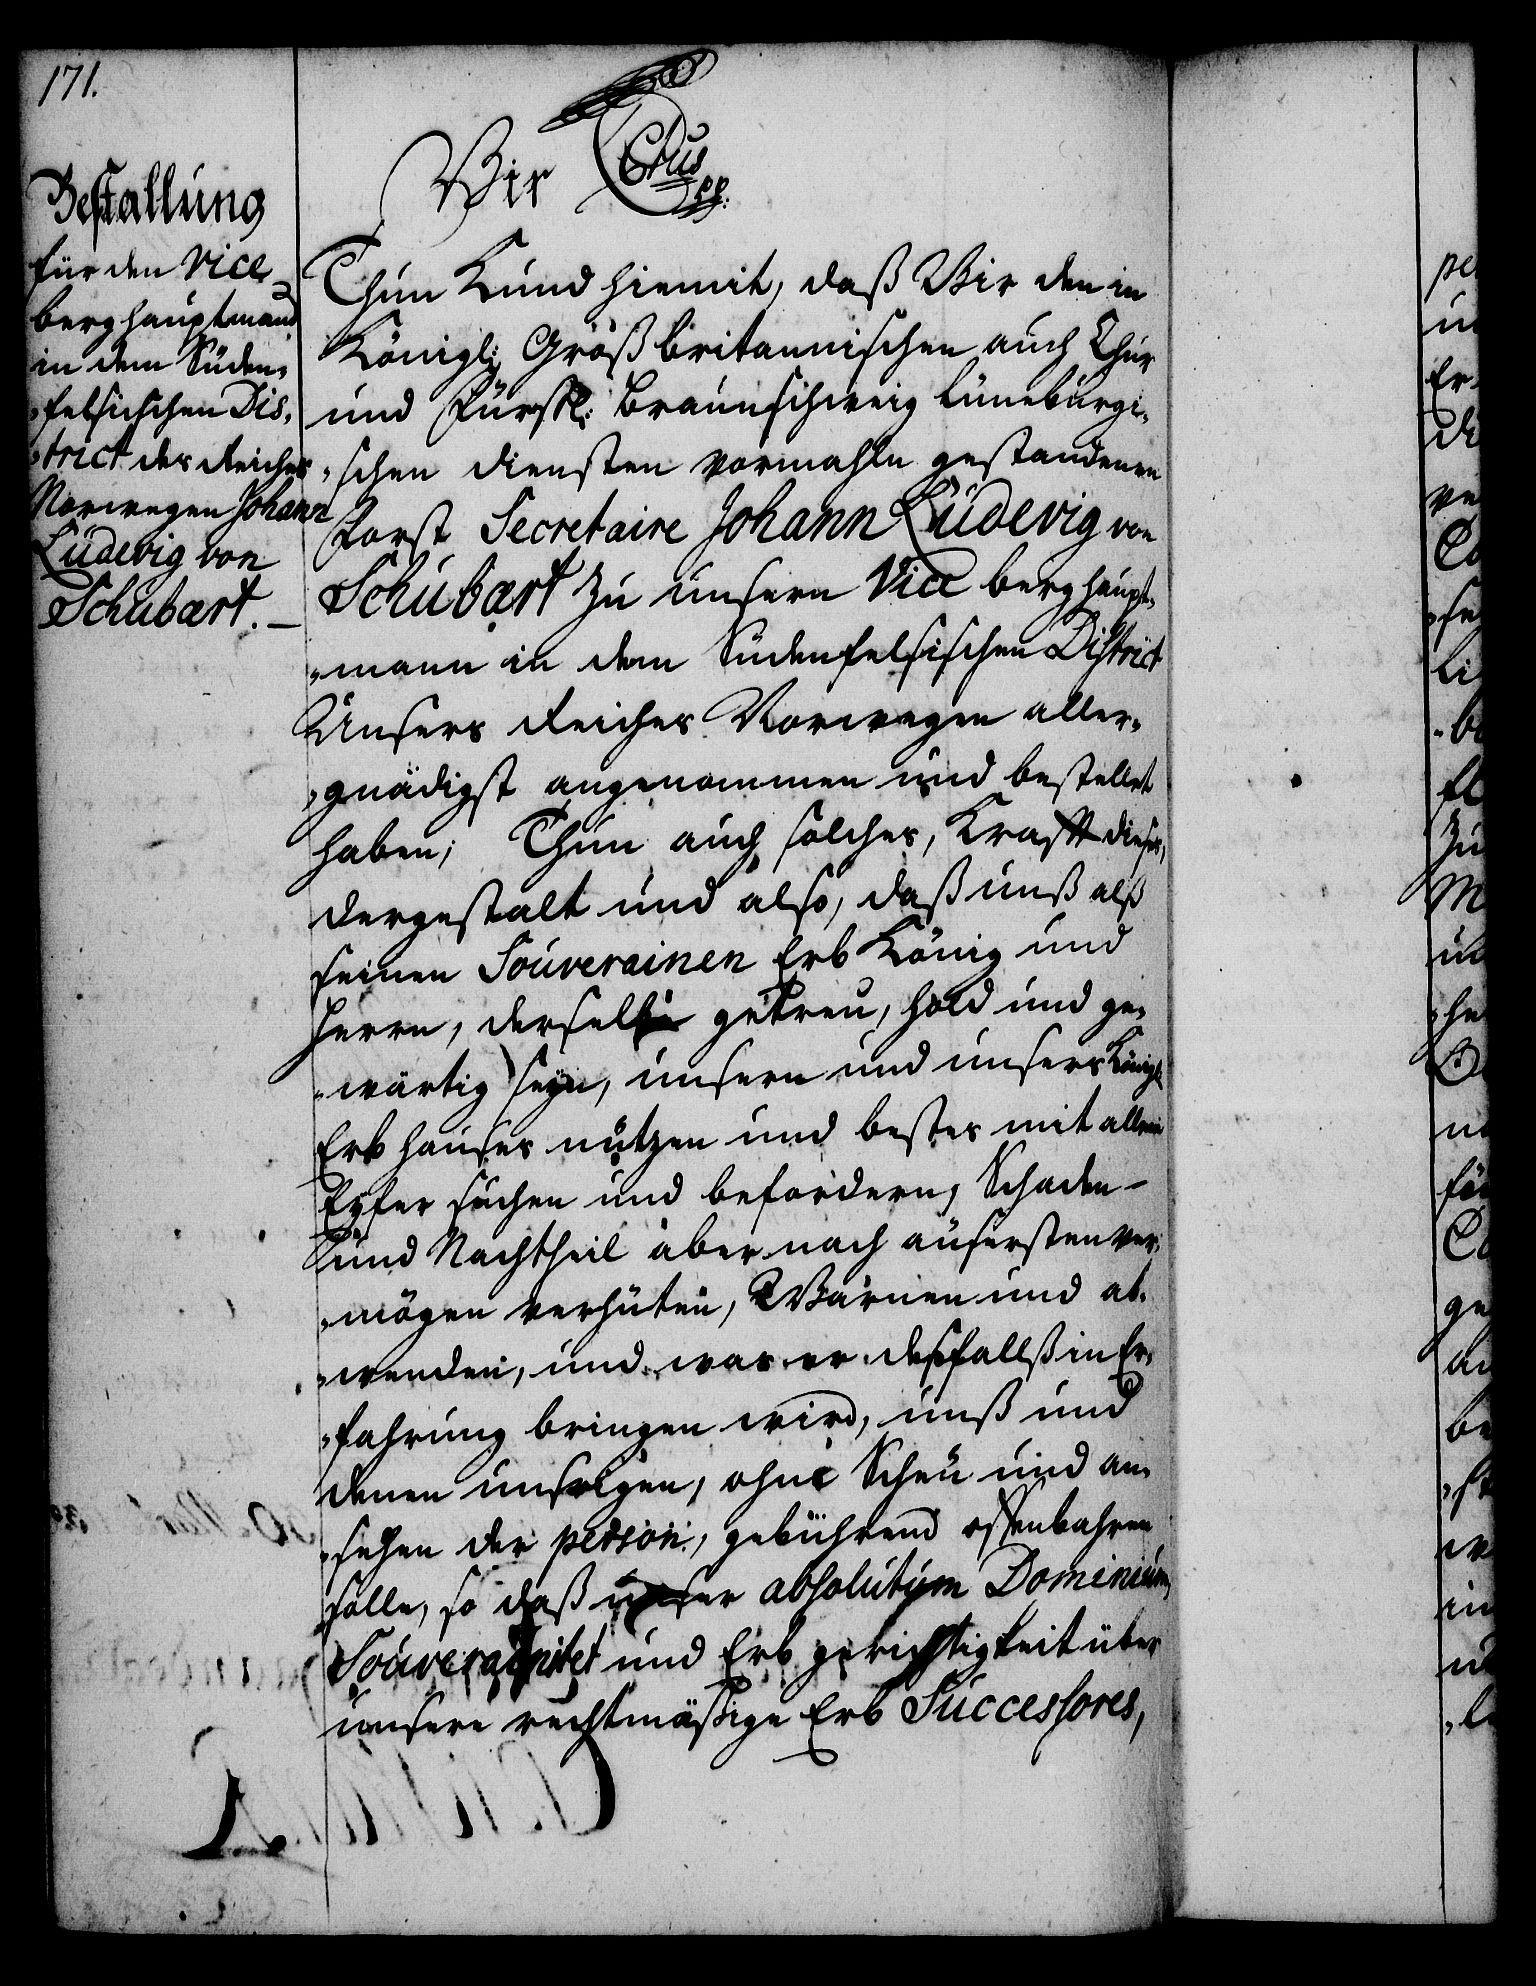 171.
Bestallung
für den Vice
berghauptmand
in dem Süden-
-felsischen Dis-
-trict des Reiches
Norwegen Johann
Ludevig von
Schubart. –
Wir CVIus pp.
Thun Kund hiemit, daß Wir den in
Königl: Großbritannischen auch Chur
und Fürstl: Braunschweig Lüneburgi-
-schen diensten vormahln gestandenen
Forst Secretaire Johann Ludevig von
Schubart zu unsern Vice berghaupt-
-mann in dem Südenfelsischen District
Unsers Reiches Norwegen aller-
-gnädigst angenommen und bestellet
haben; Thun auch solches, Krafft dieses,
dergestalt und also, daß unß alß
seinen Souverainen Erb König und
Herrn, derselbe getreu, hold und ge-
-wärtig seyn, unsern und unsers Königl:
Erb hauses nutzen und bestes mit allem
Eyfer suchen und befordern, Schaden-
und Nachtheil aber nach äusersten ver-
-mögen verhüten, Warnen und ab-
-wenden, und was er desfallß in Er-
-fahrung bringen wird, unß und
denen unsrigen, ohne Scheu und an-
-sehen der person, gebührend offenbahren
solle, so daß unser absolutum Dominium,
Souverainitet und Erb gerichtigkeit über
unsere rechtmäßige Erb Successores,